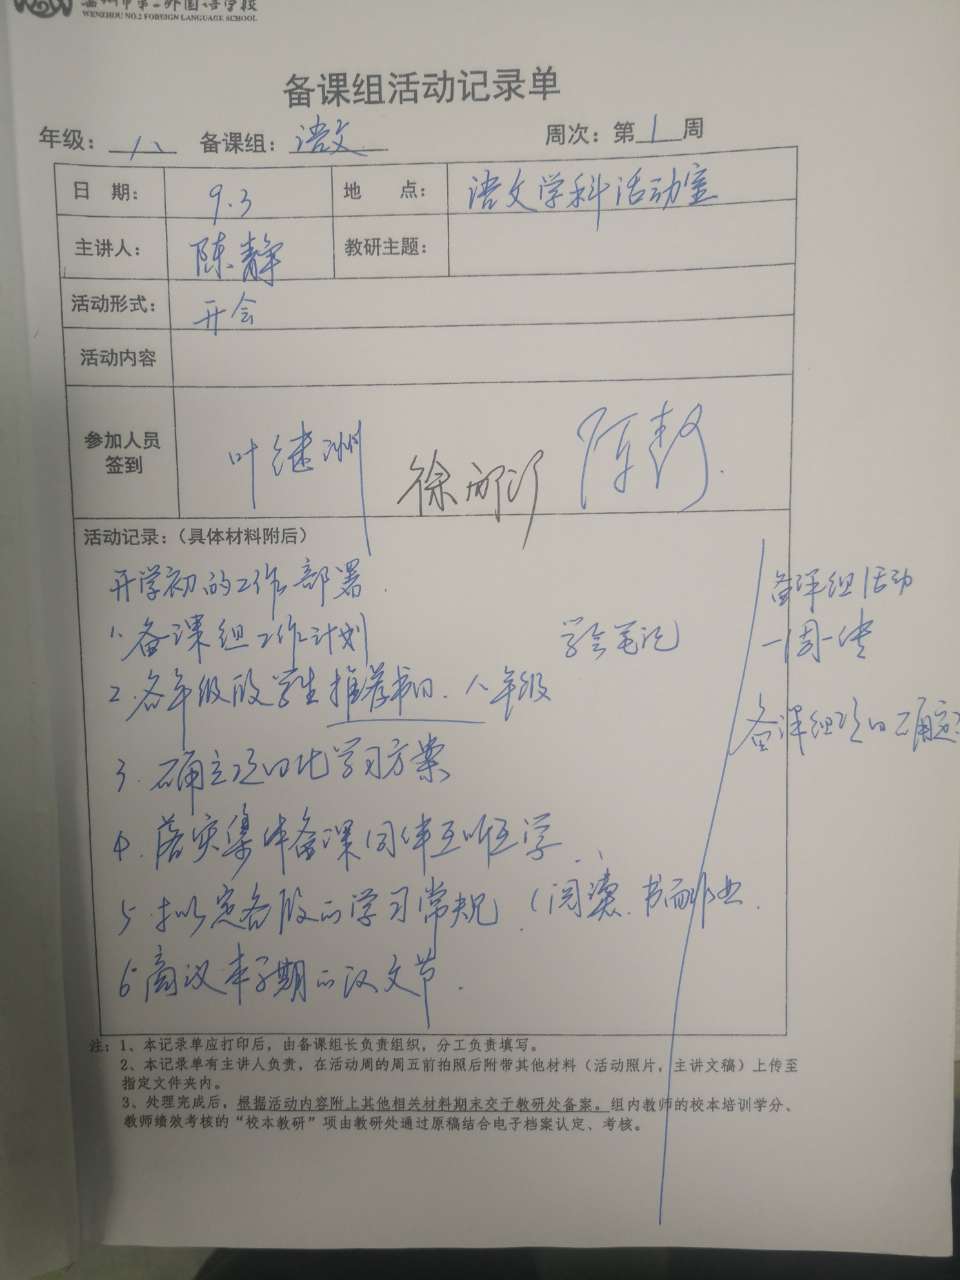 温州市第二外国语学校
WENZHOU NO.2 FOREIGN LANGUAGE SCHOOL
备课组活动记录单
年级：八 备课组：语文 周次：第1周
日 期： 9.3 地 点： 语文学科活动室
主讲人： 陈静 教研主题：
活动形式： 开会
活动内容
参加人员
签到
叶继洲 徐 陈静
活动记录：（具体材料附后）
开学初的工作部署.
1.备课组工作计划
2.各年级段学生推荐书目.八年级
3.确立项目化学习方案
4.落实集体备课同伴互听互学
5.拟定各段的学习常规（阅读.书面作业
6商议本学期的汉文节.
学会笔记
备课组活动
一周一传
备课组项目确定
注：1、本记录单应打印后，由备课组长负责组织，分工负责填写。
2、本记录单有主讲人负责，在活动周的周五前拍照后附带其他材料（活动照片，主讲文稿）上传至
指定文件夹内。
3、处理完成后，根据活动内容附上其他相关材料期末交于教研处备案。组内教师的校本培训学分、
教师绩效考核的“校本教研”项由教研处通过原稿结合电子档案认定、考核。